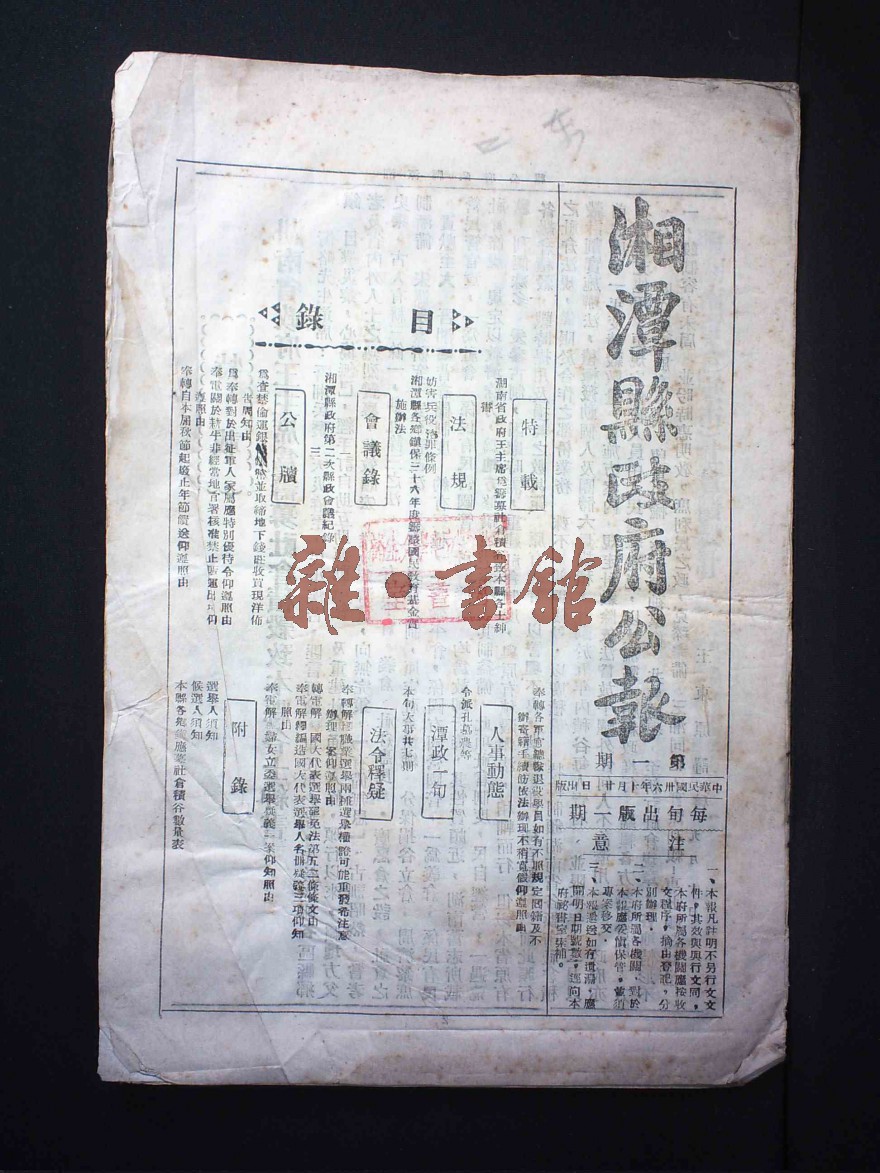 湘潭縣政府公報
第一期
中華民國卅六年十月廿日出版
每旬出版一期
注意
一、本報凡註明不另行文文
件，其效與行文同，
本府所屬各機關應按收
文程序，摘由登記，分
別辦理。
二、本府所屬各機關，對於
本報應妥慎保管，並須
專案移交。
三、本報遞送如有遺漏，應
開明日期號數，逕向本
府祕書室洽補。
目錄
特載
湖南省政府王主席為籌募社倉積穀致本縣各士紳
書
法規
妨害兵役治罪條例
湘潭縣各鄉鎮保三十六年度籌集國民教育基金實
施辦法
會議錄
湘潭縣政府第二次縣政會議紀錄
公牘
為查禁偷運銀幣並取締地下錢莊收買現洋佈
告周知由
為奉轉對於出征軍人家屬應特別優待令仰遵照由
奉電關於耕牛非經當地官署核准禁止販運出口仰
遵照由
奉轉自本屆秋節起廢止年節饋送仰遵照由
奉轉各軍官總隊退役學員如有不照規定回籍及不
辦寄轄手續飭依法辦理不稍寬假仰遵照由
人事動態
令派孔墓農等
潭政一旬
本旬大事共七則
法令釋疑
奉轉解釋職業選舉兩種選舉權證可能重發希注意
辦理一案仰遵照由
轉電解釋國大代表選舉罷免法第五二條條文由
奉電解釋編造國大代表選舉人名冊疑義三項仰知
照由
附錄
選舉人須知
候選人須知
本縣各鄉鎮應募社倉積谷數量表
雜·書館